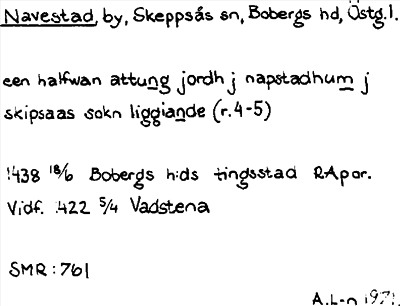 Navestad, by, Skeppsås sn, Bobergs hd, Östg.l.
een halfwan attung jordh j napstadhum j
skipsaas sokn liggiande (r.4-5)
1438 18/6 Bobergs h:ds tingsstad RApar.
Vidf. 1422 5/4 Vadstena
SMR: 761
A.L-n 1971.